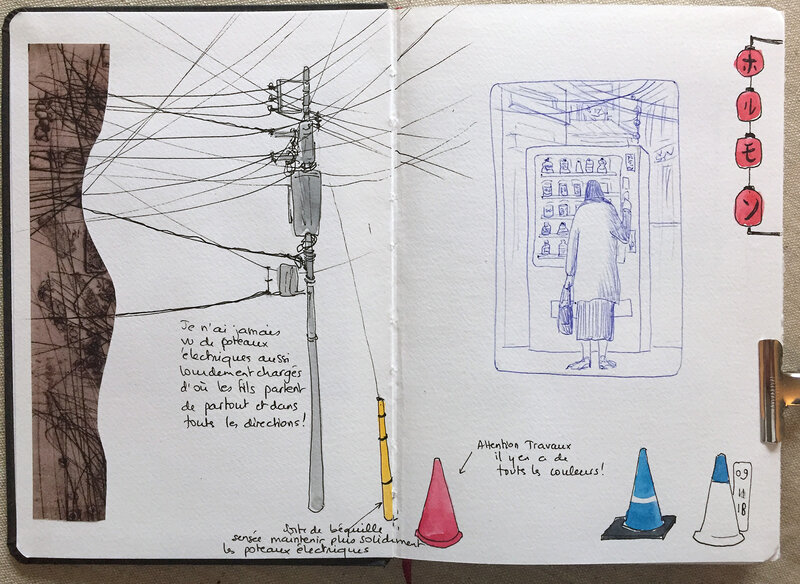 Je n'ai jamais
vu de poteaux
électriques aussi
lourdement chargés
d'où les fils partent
de partout et dans
touts les directions!
Sorte de béquille
sensée maintenir plus solidement
les poteaux électriques
ホ
ル
モ
ン
Attention Travaux
il y en a de
touts les couleurs!
09
11
18